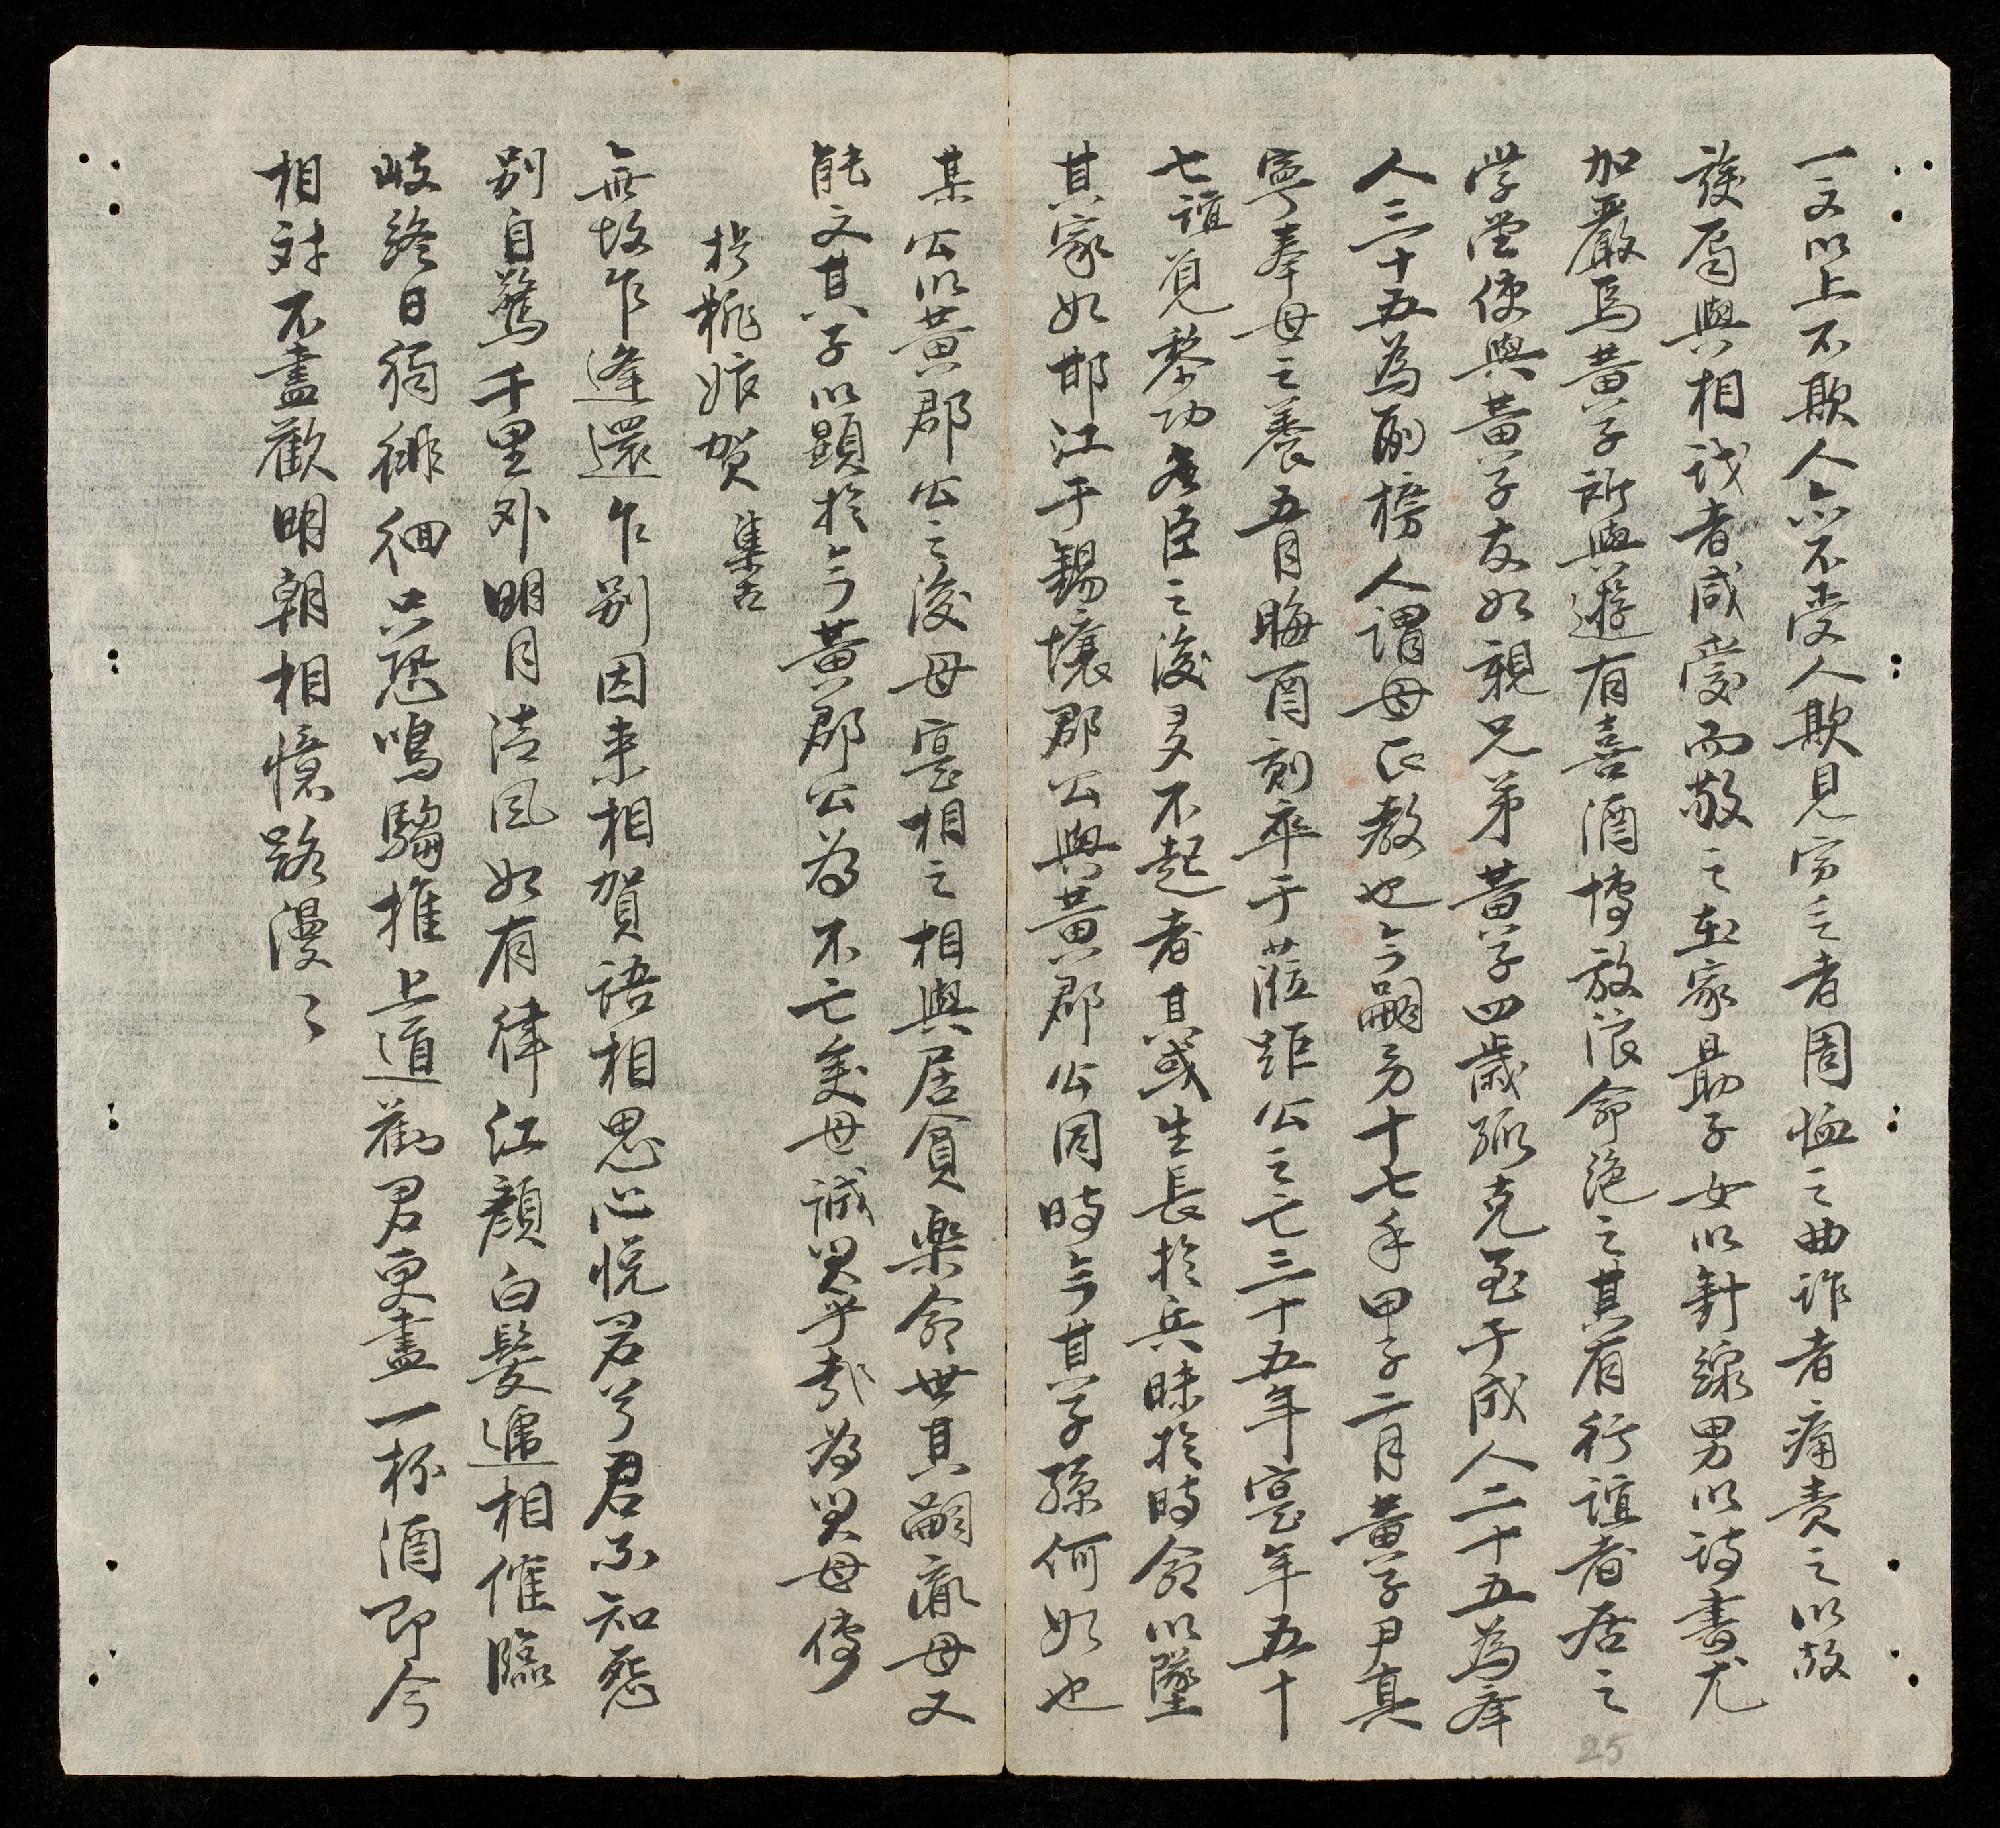 一文以上不欺人亦不受人欺見窮乏者周恤之曲詐者痛責之以故
後屑與相識者咸愛而敬之在家最子女以針線男以詩書尤
加嚴焉黃子所與遊有喜酒博放浪命絶之其有行誼者居之
学堂使與黃子友如親兄弟黃子四歳孤克至于成人二十五為庠
人三十五為副榜人謂母氏教也今嗣寡十七年甲子二月黃子尹真
寧奉母之養五月晦酉刻卒于蒞距公之亡三十五年寔年五十
七誼見黎功名臣之後多不起者其或生長於兵昧於時命以墜
其家如邯江于錫壤郡公與黃郡公同時今其子孫何如也
某公以黃郡公之後母寔相之相與居貧樂命世其嗣嶶母又
能文其子以顯於今黃郡公為不亡矣母誠賢乎哉為賢母傳
於桃娘賀 集古
無故乍逢還乍別因来相賀語相思心悅君兮君不知愁
别自驚千里外明月清風如有律江顏白髮遞相催臨
岐終日獨徘徊只恐鳴騶推上道勸君更盡一杯酒即今
相對不盡歡明朝相憶路漫〻
25